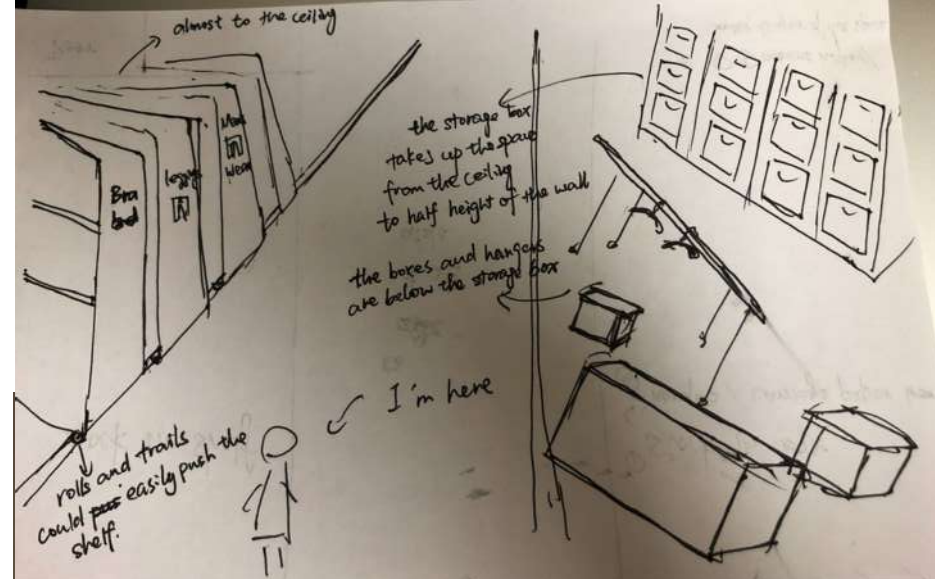 almost to the ceiling
Bra
legging
Wear
the storage box
takes up the space
from the ceiling
to half height of the wall
the boxes and hangers
are below the storage box
I'm here
rolls and trails
could easily push the
shelf.